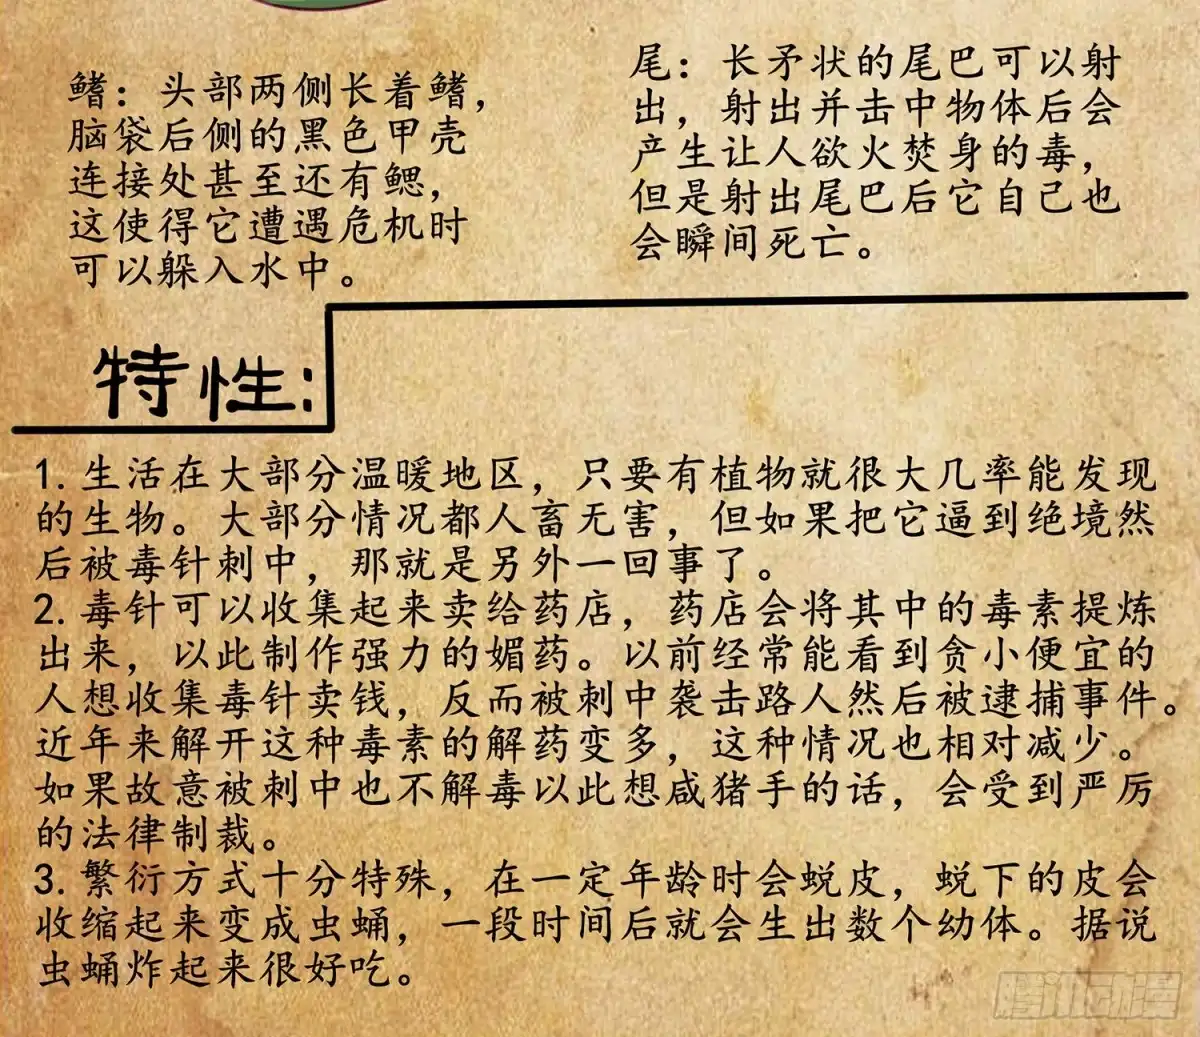 鳍：头部两侧长着鳍，
脑袋后侧的黑色甲壳
连接处甚至还有鳃，
这使得它遭遇危机时
可以躲入水中。
尾：长矛状的尾巴可以射
出，射出并击中物体后会
产生让人欲火焚身的毒，
但是射出尾巴后它自己也
会瞬间死亡。
特性：
1. 生活在大部分温暖地区，只要有植物就很大几率能发现
的生物。大部分情况都人畜无害，但如果把它逼到绝境然
后被毒针刺中，那就是另外一回事了。
2. 毒针可以收集起来卖给药店，药店会将其中的毒素提炼
出来，以此制作强力的媚药。以前经常能看到贪小便宜的
人想收集毒针卖钱，反而被刺中袭击路人然后被逮捕事件。
近年来解开这种毒素的解药变多，这种情况也相对减少。
如果故意被刺中也不解毒以此想咸猪手的话，会受到严厉
的法律制裁。
3. 繁衍方式十分特殊，在一定年龄时会蜕皮，蜕下的皮会
收缩起来变成虫蛹，一段时间后就会生出数个幼体。据说
虫蛹炸起来很好吃。
腾讯动漫